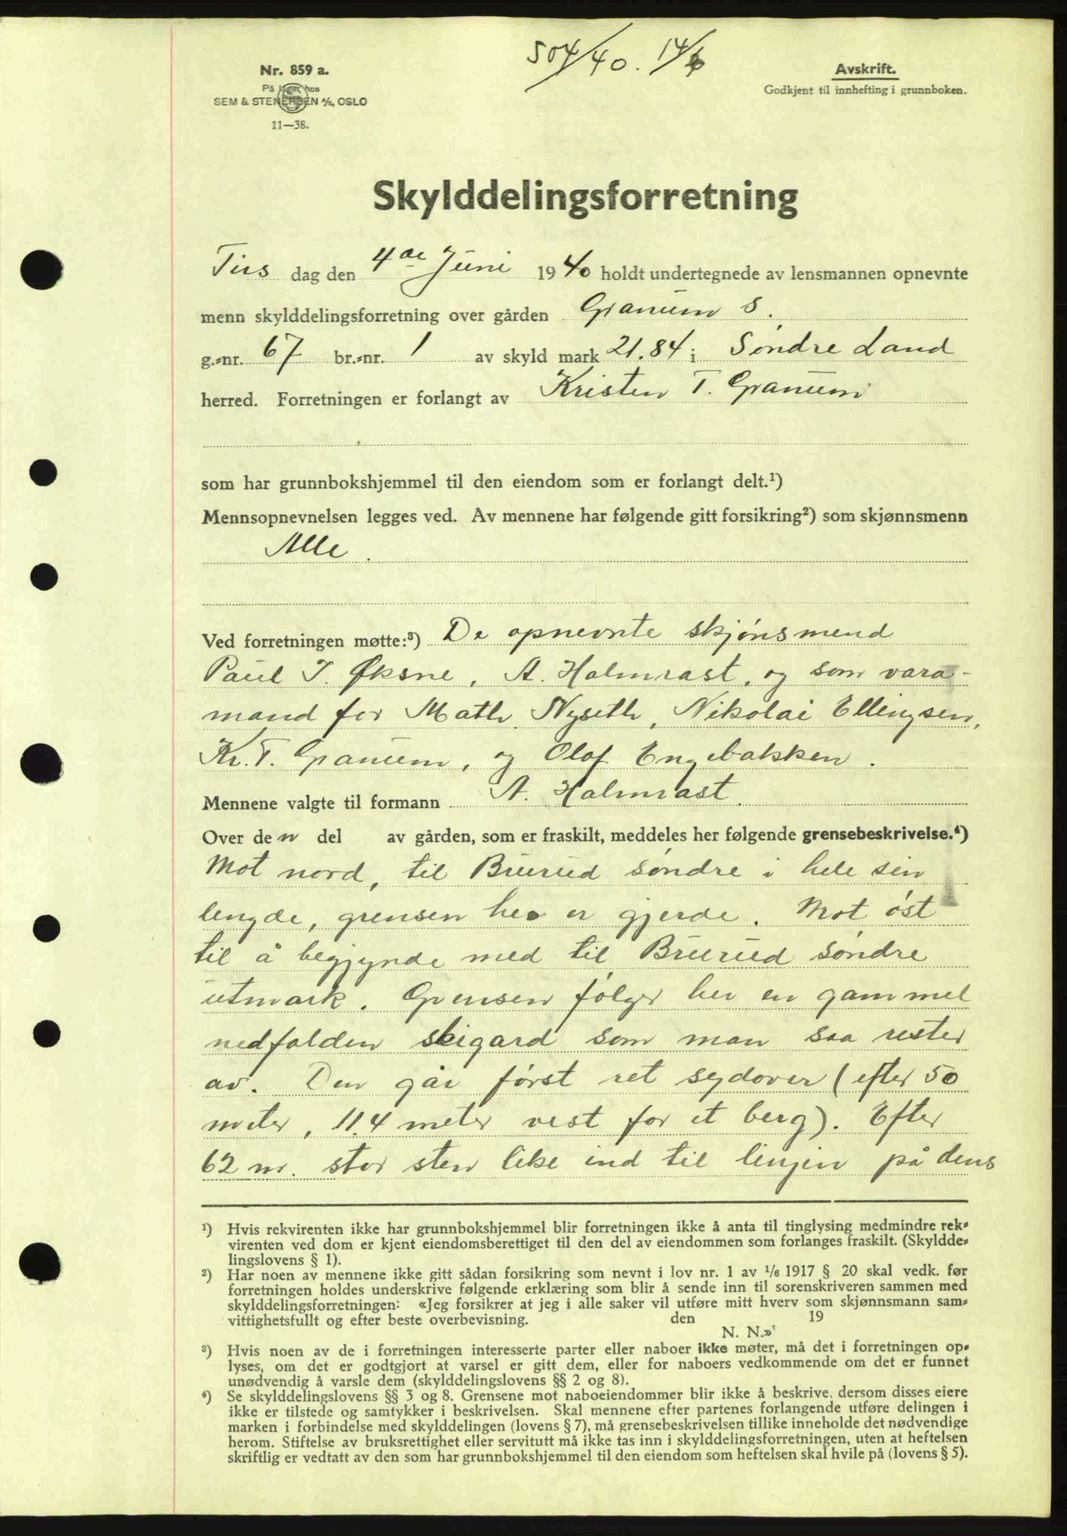 504/40. 14/6
Nr. 859 a.
På lager hos
SEM & STENERSEN A/S, OSLO
11—38.
Avskrift.
Godkjent til innhefting i grunnboken.
Skylddelingsforretning
Tirs dag den 4de Juni 1940 holdt undertegnede av lensmannen opnevnte
menn skylddelingsforretning over gården Granum S.
g.-nr. 67 br.-nr. 1 av skyld mark 21.84 i Søndre Land
herred. Forretningen er forlangt av Kristen T. Granum
som har grunnbokshjemmel til den eiendom som er forlangt delt.¹)
Mennsopnevnelsen legges ved. Av mennene har følgende gitt forsikring²) som skjønnsmenn
Alle.
Ved forretningen møtte:³) De opnevnte skjønsmend
Paul I. Øksne, A. Halmrast, og som vara-
mand for Math. Nyseth, Nikolai Ellingsen,
Kr. T. Granum, og Olof Engebakken.
Mennene valgte til formann A. Halmrast.
Over den del av gården, som er fraskilt, meddeles her følgende grensebeskrivelse.⁴)
Mot nord, til Brurud søndre i hele sin
lengde, grensen her er gjerde. Mot øst
til å begjynde med til Brurud søndre
utmark. Grensen følger her en gammel
nedfalden skigard som man saa rester
av. Den går først ret sydover (efter 50
meter, 11.4 meter vest for et berg). Efter
62 m. stor sten like ind til linjen på dens
¹) Hvis rekvirenten ikke har grunnbokshjemmel blir forretningen ikke å anta til tinglysing medmindre rek-
virenten ved dom er kjent eiendomsberettiget til den del av eiendommen som forlanges fraskilt. (Skyldde-
lingslovens § 1).
²) Har noen av mennene ikke gitt sådan forsikring som nevnt i lov nr. 1 av 1/6 1917 § 20 skal vedk. før
forretningen holdes underskrive følgende erklæring som blir å sende inn til sorenskriveren sammen med
skylddelingsforretningen: «Jeg forsikrer at jeg i alle saker vil utføre mitt hverv som skjønnsmann sam-
vittighetsfullt og efter beste overbevisning. den 19
N. N.»
³) Hvis noen av de i forretningen interesserte parter eller naboer ikke møter, må det i forretningen op-
lyses, om det er godtgjort at varsel er gitt dem, eller for naboers vedkommende om det er funnet
unødvendig å varsle dem (skylddelingslovens §§ 2 og 8).
⁴) Se skylddelingslovens §§ 3 og 8. Grensene mot naboeiendommer blir ikke å beskrive, dersom disses eiere
ikke er tilstede og samtykker i beskrivelsen. Skal mennene efter partenes forlangende utføre delingen i
marken i forbindelse med skylddelingen (lovens § 7), må grensebeskrivelsen tillike inneholde det nødvendige
herom. Stiftelse av bruksrettighet eller servitutt må ikke tas inn i skylddelingsforretningen, uten at heftelsen
skriftlig er vedtatt av den som har grunnbokshjemmel til den eiendom som heftelsen skal hvile på (lovens § 5).